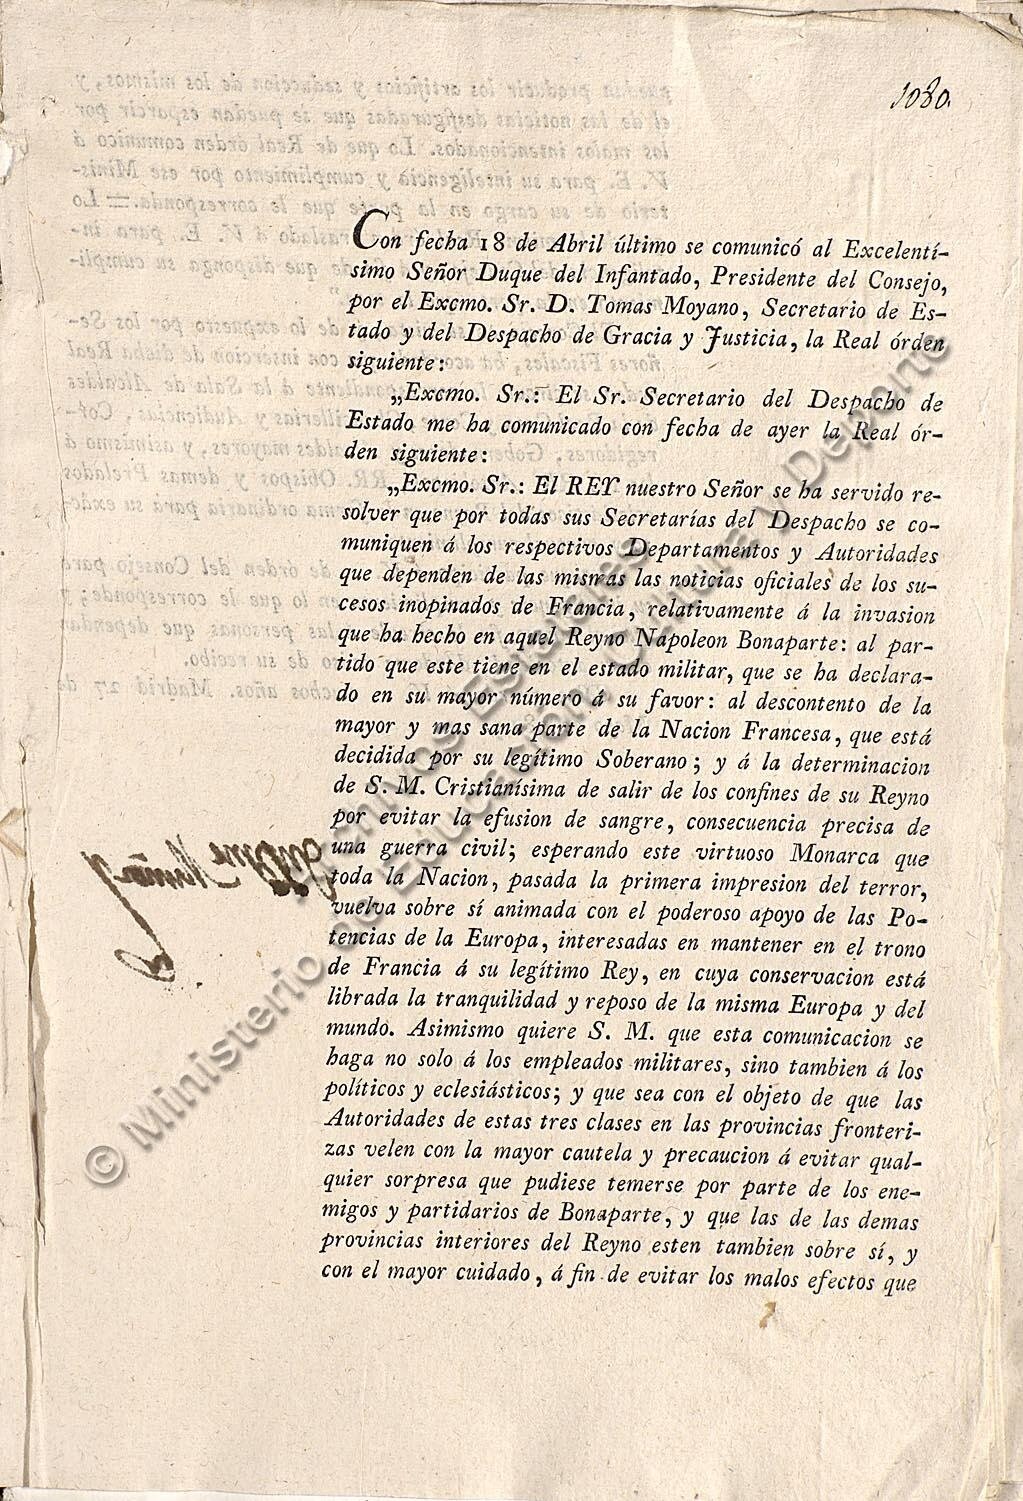 1080.
Con fecha 18 de Abril último se comunicó al Excelentí-
simo Señor Duque del Infantado, Presidente del Consejo,
por el Excmo. Sr. D. Tomas Moyano, Secretario de Es-
tado y del Despacho de Gracia y Justicia, la Real órden
siguiente:
„Excmo. Sr.: El Sr. Secretario del Despacho de
Estado me ha comunicado con fecha de ayer la Real ór-
den siguiente:
„Excmo. Sr.: El REY nuestro Señor se ha servido re-
solver que por todas sus Secretarías del Despacho se co-
muniquen á los respectivos Departamentos y Autoridades
que dependen de las mismas las noticias oficiales de los su-
cesos inopinados de Francia, relativamente á la invasion
que ha hecho en aquel Reyno Napoleon Bonaparte: al par-
tido que este tiene en el estado militar, que se ha declara-
do en su mayor número á su favor: al descontento de la
mayor y mas sana parte de la Nacion Francesa, que está
decidida por su legítimo Soberano; y á la determinacion
de S. M. Cristianísima de salir de los confines de su Reyno
por evitar la efusion de sangre, consecuencia precisa de
una guerra civil; esperando este virtuoso Monarca que
toda la Nacion, pasada la primera impresion del terror,
vuelva sobre sí animada con el poderoso apoyo de las Po-
tencias de la Europa, interesadas en mantener en el trono
de Francia á su legítimo Rey, en cuya conservacion está
librada la tranquilidad y reposo de la misma Europa y del
mundo. Asimismo quiere S. M. que esta comunicacion se
haga no solo á los empleados militares, sino tambien á los
políticos y eclesiásticos; y que sea con el objeto de que las
Autoridades de estas tres clases en las provincias fronteri-
zas velen con la mayor cautela y precaucion á evitar qual-
quier sorpresa que pudiese temerse por parte de los ene-
migos y partidarios de Bonaparte, y que las de las demas
provincias interiores del Reyno esten tambien sobre sí, y
con el mayor cuidado, á fin de evitar los malos efectos que
© Ministerio de Educación, Cultura y Deporte
Archivos Estatales